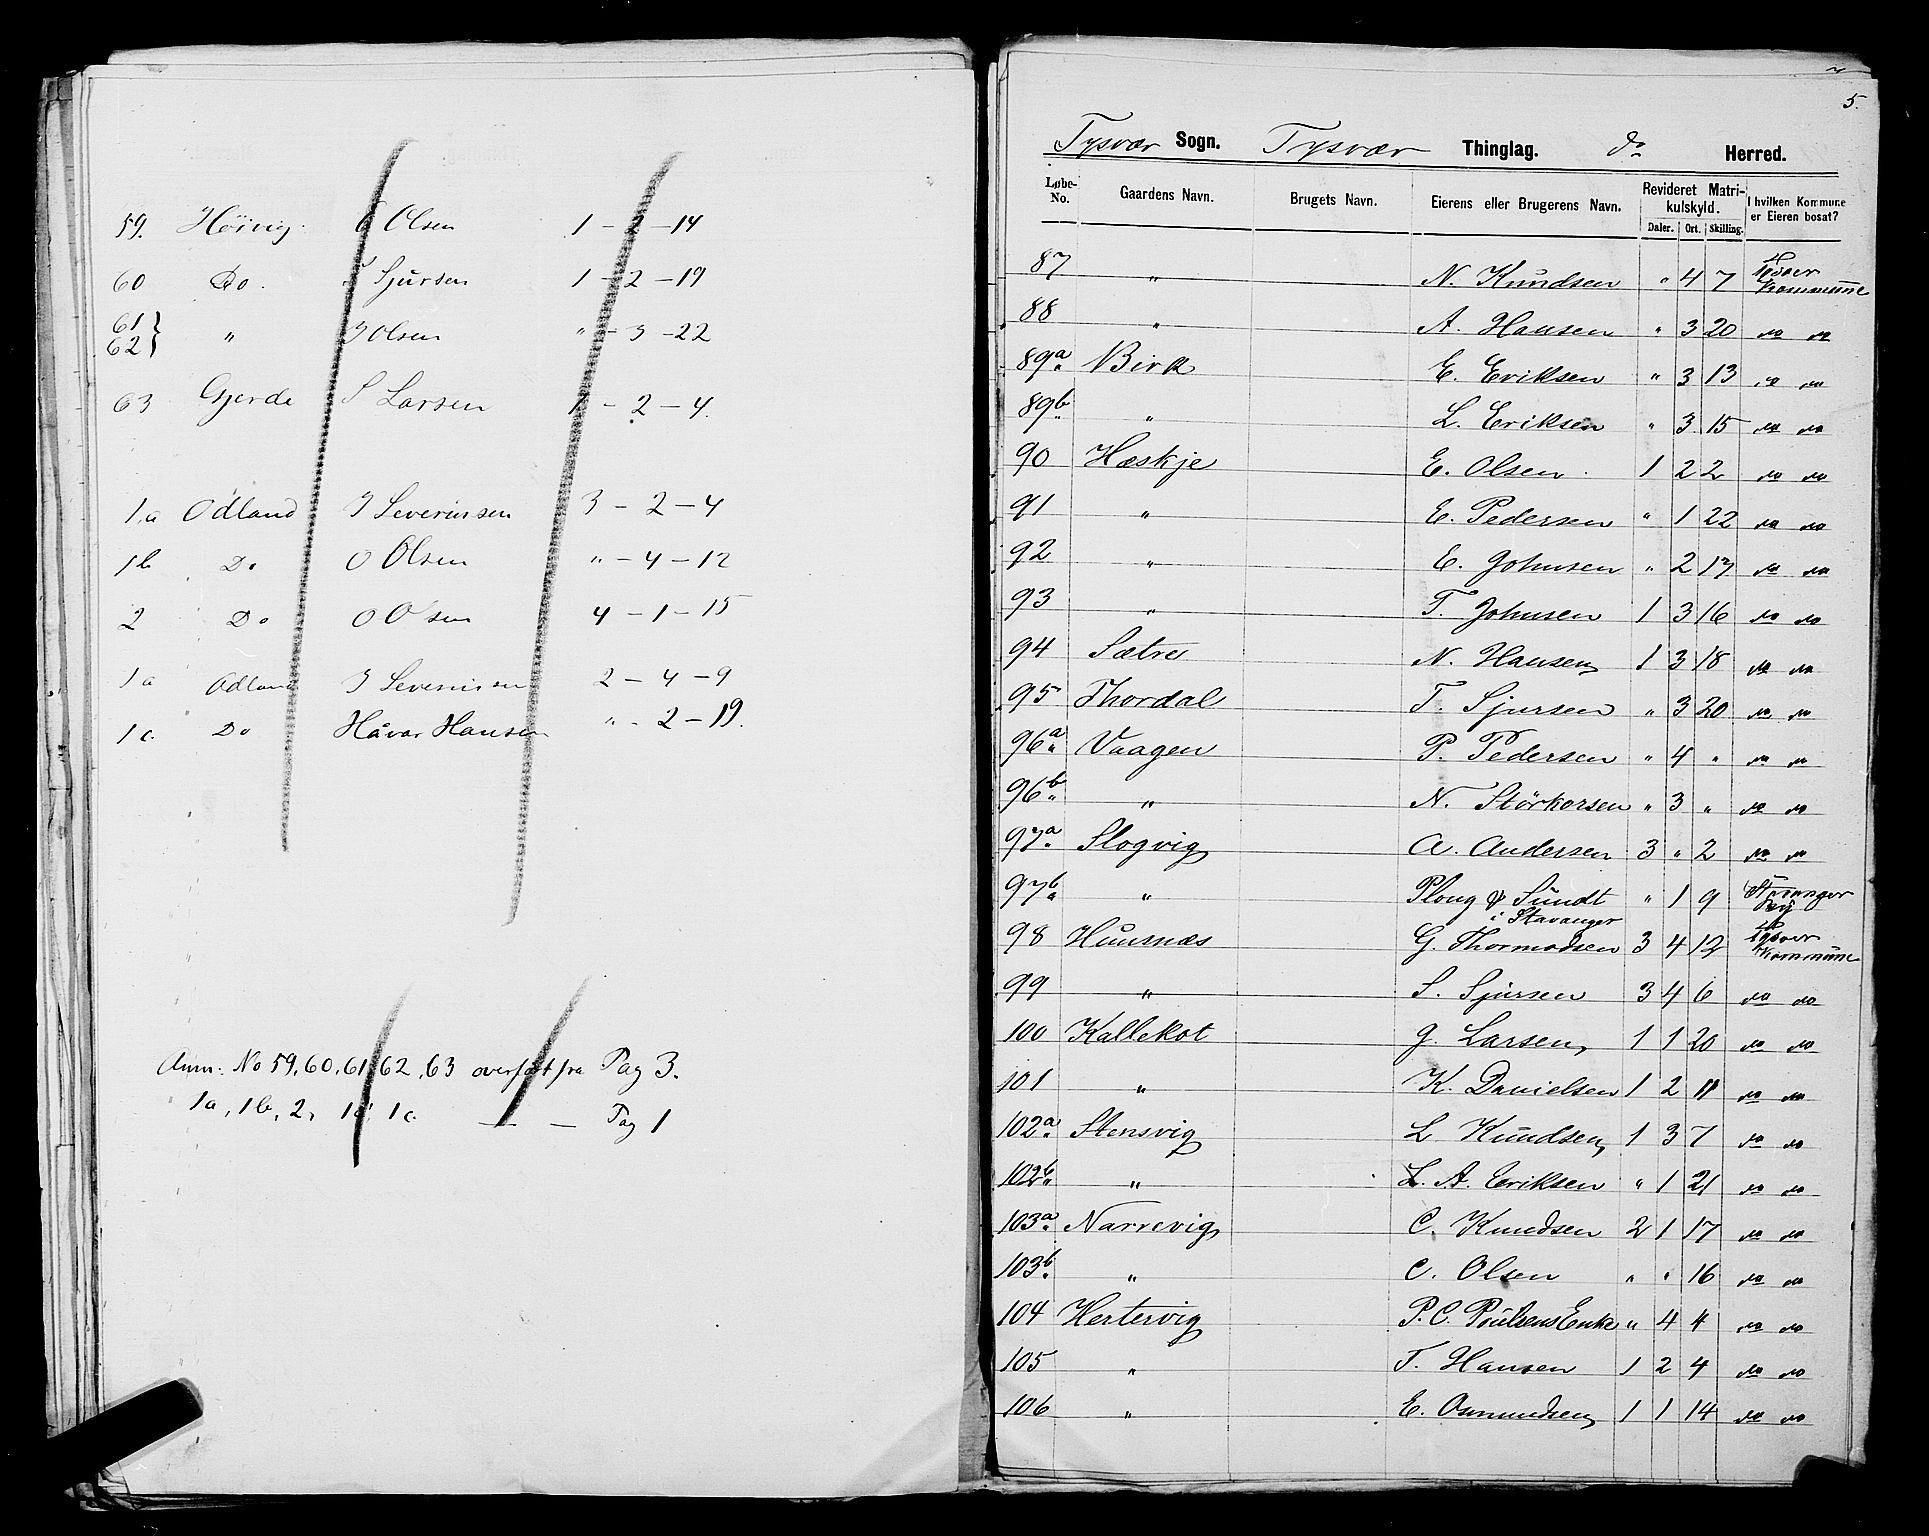 59. Hövig. E Olsen 1 - 2 - 14
60 Do. S Sjursen 1 - 2 - 19
61
62 } " J Olsen " - 3 - 22
63 Gjerde S Larsen 1 - 2 - 4.
1a Odland J Severinsen 3 - 2 - 4
1b Do O Olsen " - 4 - 12
2 Do O Olsen 4 - 1 - 15
1a Odland J Severinsen 2 - 4 - 9
1c. Do Håvar Hansen " - 2 - 19.
Anm: No 59, 60, 61, 62, 63 overført fra Pag 3.
1a, 1b, 2, 1a, 1c. — — Pag 1
5.
Tysvær Sogn. Tysvær Thinglag. do Herred.
Løbe-No. Gaardens Navn. Brugets Navn. Eierens eller Brugerens Navn. Revideret Matrikulskyld. I hvilken Kommune er Eieren bosat?
Daler. Ort. Skilling.
87 " N. Knudsen " 4 7 Tysvær Kommune
88 " A. Hansen " 3 20 do do
89a Birk E. Eriksen " 3 13 do do
89b " L. Eriksen " 3 15 do do
90 Hæskje E. Olsen 1 2 2 do do
91 " E. Pedersen " 1 22 do do
92 " E. Johnsen " 2 17 do do
93 " T. Johnsen 1 3 16 do do
94 Sætre N. Hansen 1 3 18 do do
95 Thordal T. Sjursen " 3 20 do do
96a Vaagen P. Pedersen " 4 " do do
96b " N. Störkorsen " 3 " do do
97a Slogvig A. Andersen 3 " 2 do do
97b " Ploug & Sundt i Stavanger " 1 9 Stavanger By
98 Huusnæs G. Thormodsen 3 4 12 Tysvær Kommune
99 " S. Sjursen 3 4 6 do do
100 Kallekot G. Larsen 1 1 20 do do
101 " K. Danielsen 1 2 11 do do
102a Stensvig L Knudsen 1 3 7 do do
102b " L. A. Eriksen " 1 21 do do
103a Narrevig C. Knudsen 2 1 17 do do
103b " C. Olsen " " 16 do do
104 Hertervig P. C. Poulsens Enke " 4 4 do do
105 " T. Hansen 1 2 4 do do
106 " E. Osmundsen 1 1 14 do do